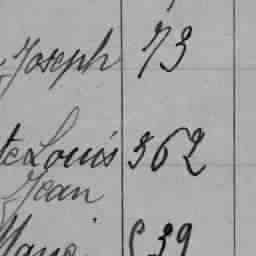 Joseph 73
te Louis 362
Jean
Marie 39